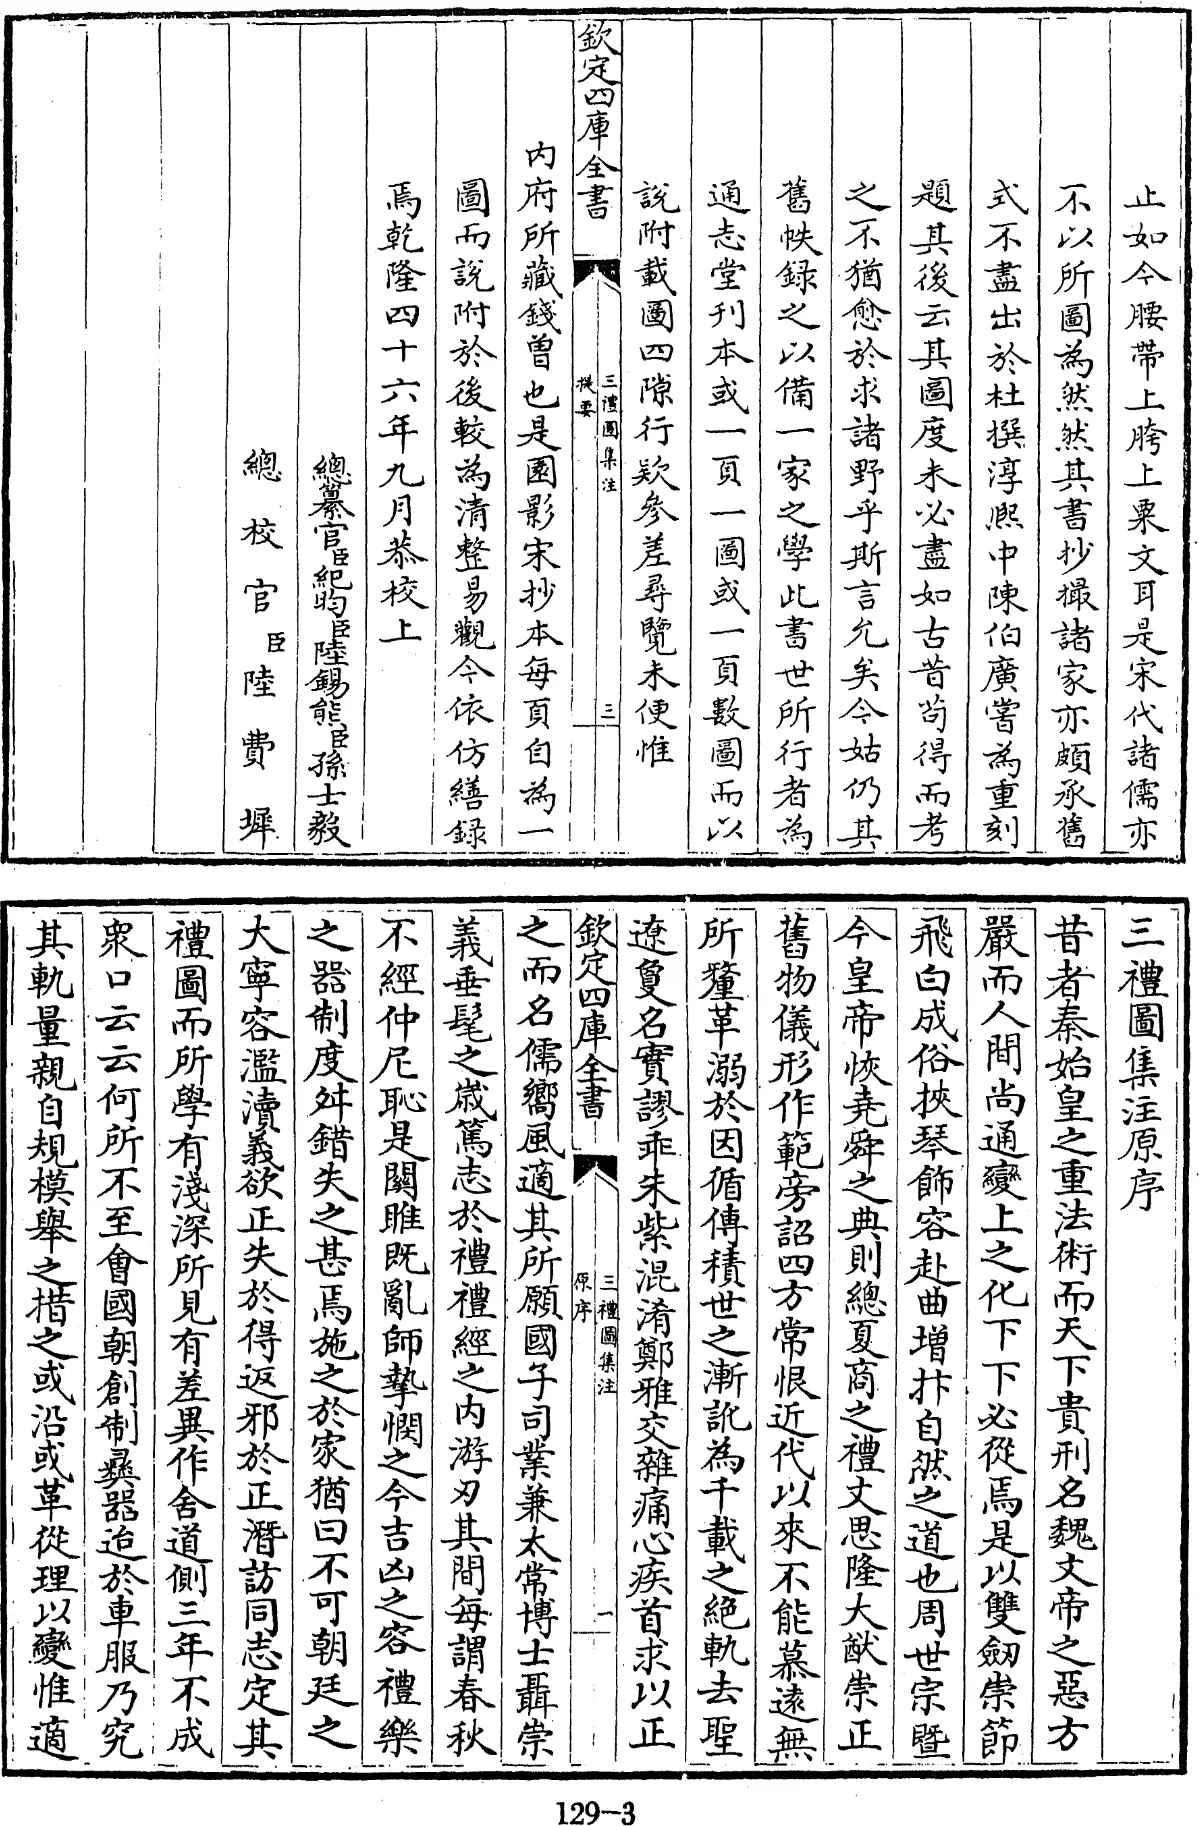 止如今腰帶上胯上粟文耳是宋代諸儒亦
不以所圖為然然其書抄撮諸家亦頗承舊
式不盡出於杜撰淳熙中陳伯廣嘗為重刻
題其後云其圖度未必盡如古昔茍得而考
之不猶愈於求諸野乎斯言允矣今姑仍其
舊帙録之以備一家之學此書世所行者為
通志堂刊本或一頁一圖或一頁數圖而以
說附載圖四隙行款參差尋覽未便惟
欽定四庫全書
三禮圖集注
提要
三
内府所藏錢曽也是園影宋抄本每頁自為一
圖而說附於後較為清整易觀今依仿繕録
焉乾隆四十六年九月恭校上
總纂官臣紀昀臣陸錫熊臣孫士毅
總校官臣陸費墀
三禮圖集注原序
昔者秦始皇之重法術而天下貴刑名魏文帝之惡方
嚴而人間尚通變上之化下下必從焉是以雙劒崇節
飛白成俗挾琴飾容赴曲増抃自然之道也周世宗暨
今皇帝恢堯舜之典則總夏商之禮文思隆大猷崇正
舊物儀形作範旁詔四方常恨近代以來不能慕遠無
所釐革溺於因循傳積世之漸訛為千載之絶軌去聖
遼敻名實謬乖朱紫混淆鄭雅交雜痛心疾首求以正
欽定四庫全書
三禮圖集注
原序
一
之而名儒嚮風適其所願國子司業兼太常博士聶崇
義垂髦之嵗篤志於禮禮經之内游刃其間每謂春秋
不經仲尼恥是關雎既亂師摯憫之今吉凶之容禮樂
之器制度舛錯失之甚焉施之於家猶曰不可朝廷之
大寧容濫瀆義欲正失於得返邪於正潛訪同志定其
禮圖而所學有淺深所見有差異作舍道側三年不成
衆口云云何所不至會國朝創制彛器迨於車服乃究
其軌量親自規模舉之措之或沿或革從理以變惟適
129-3